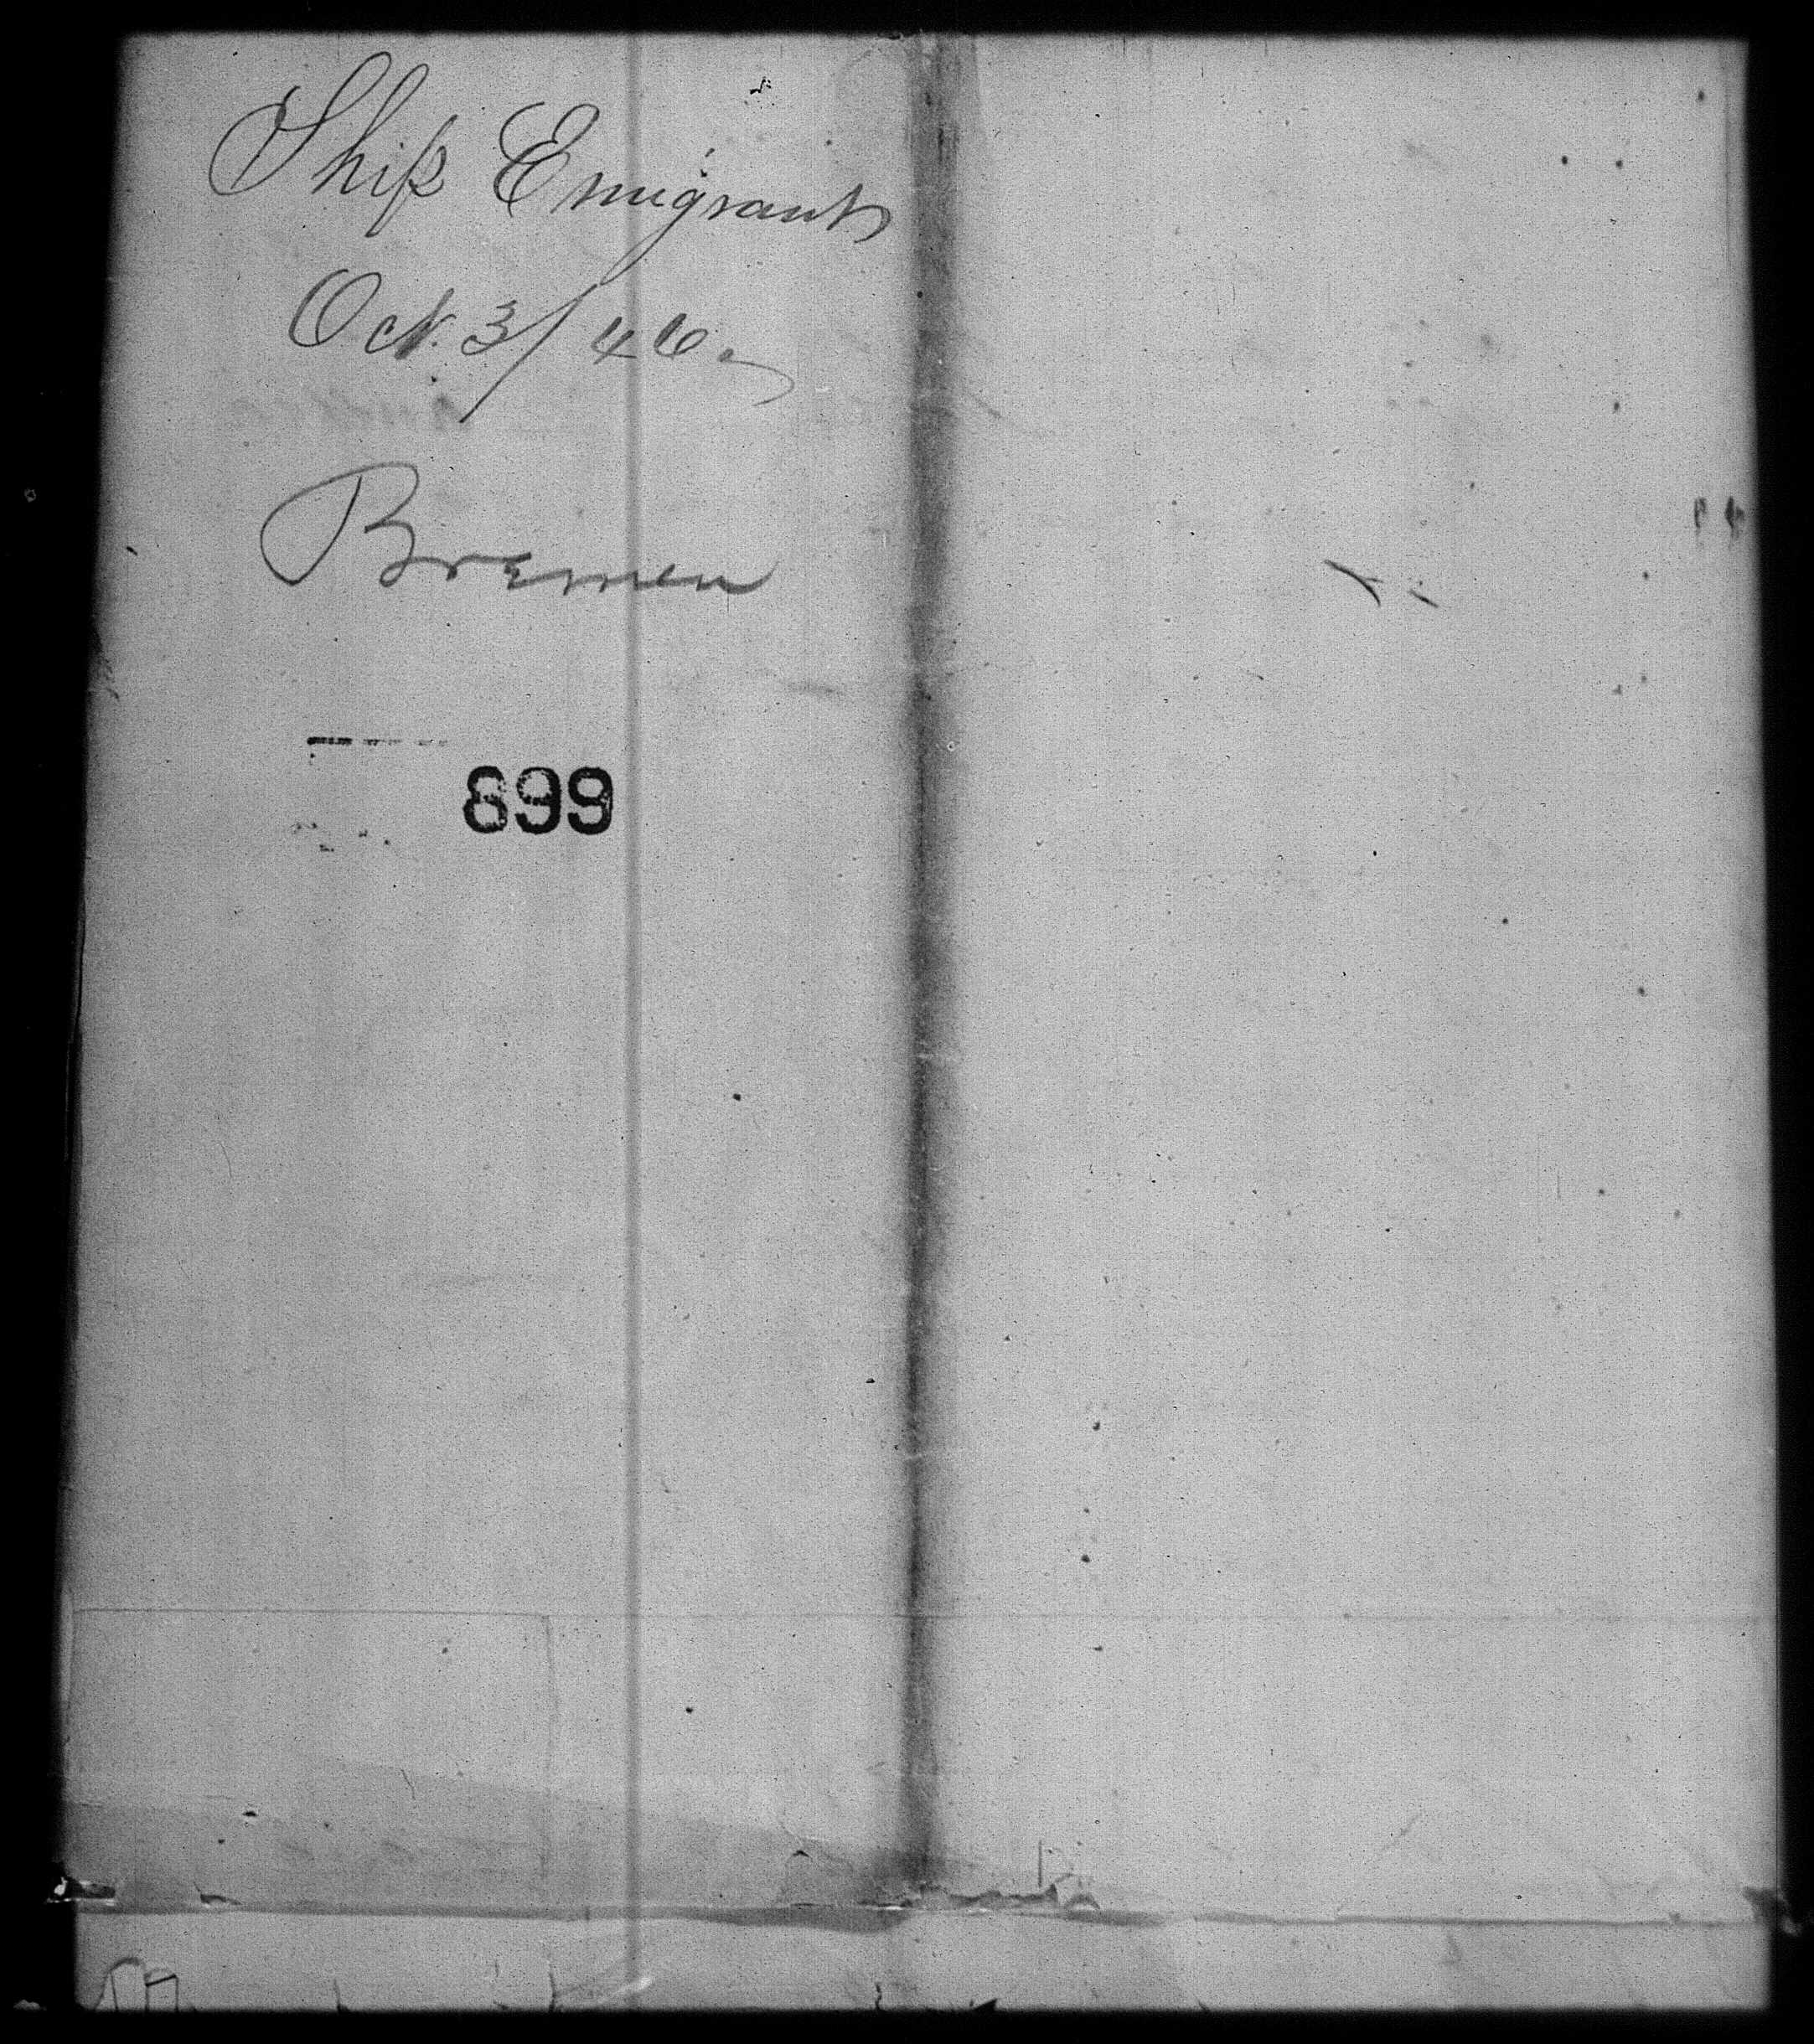 Ship Emigrant
Oct. 3/46
Bremen
899